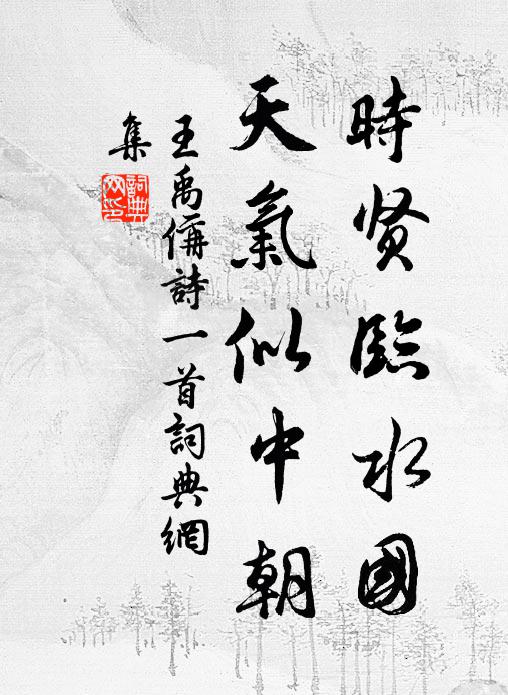 時贤臨水國
天氣似中朝
王禹偁詩一首詞典網
集
詞典
网印